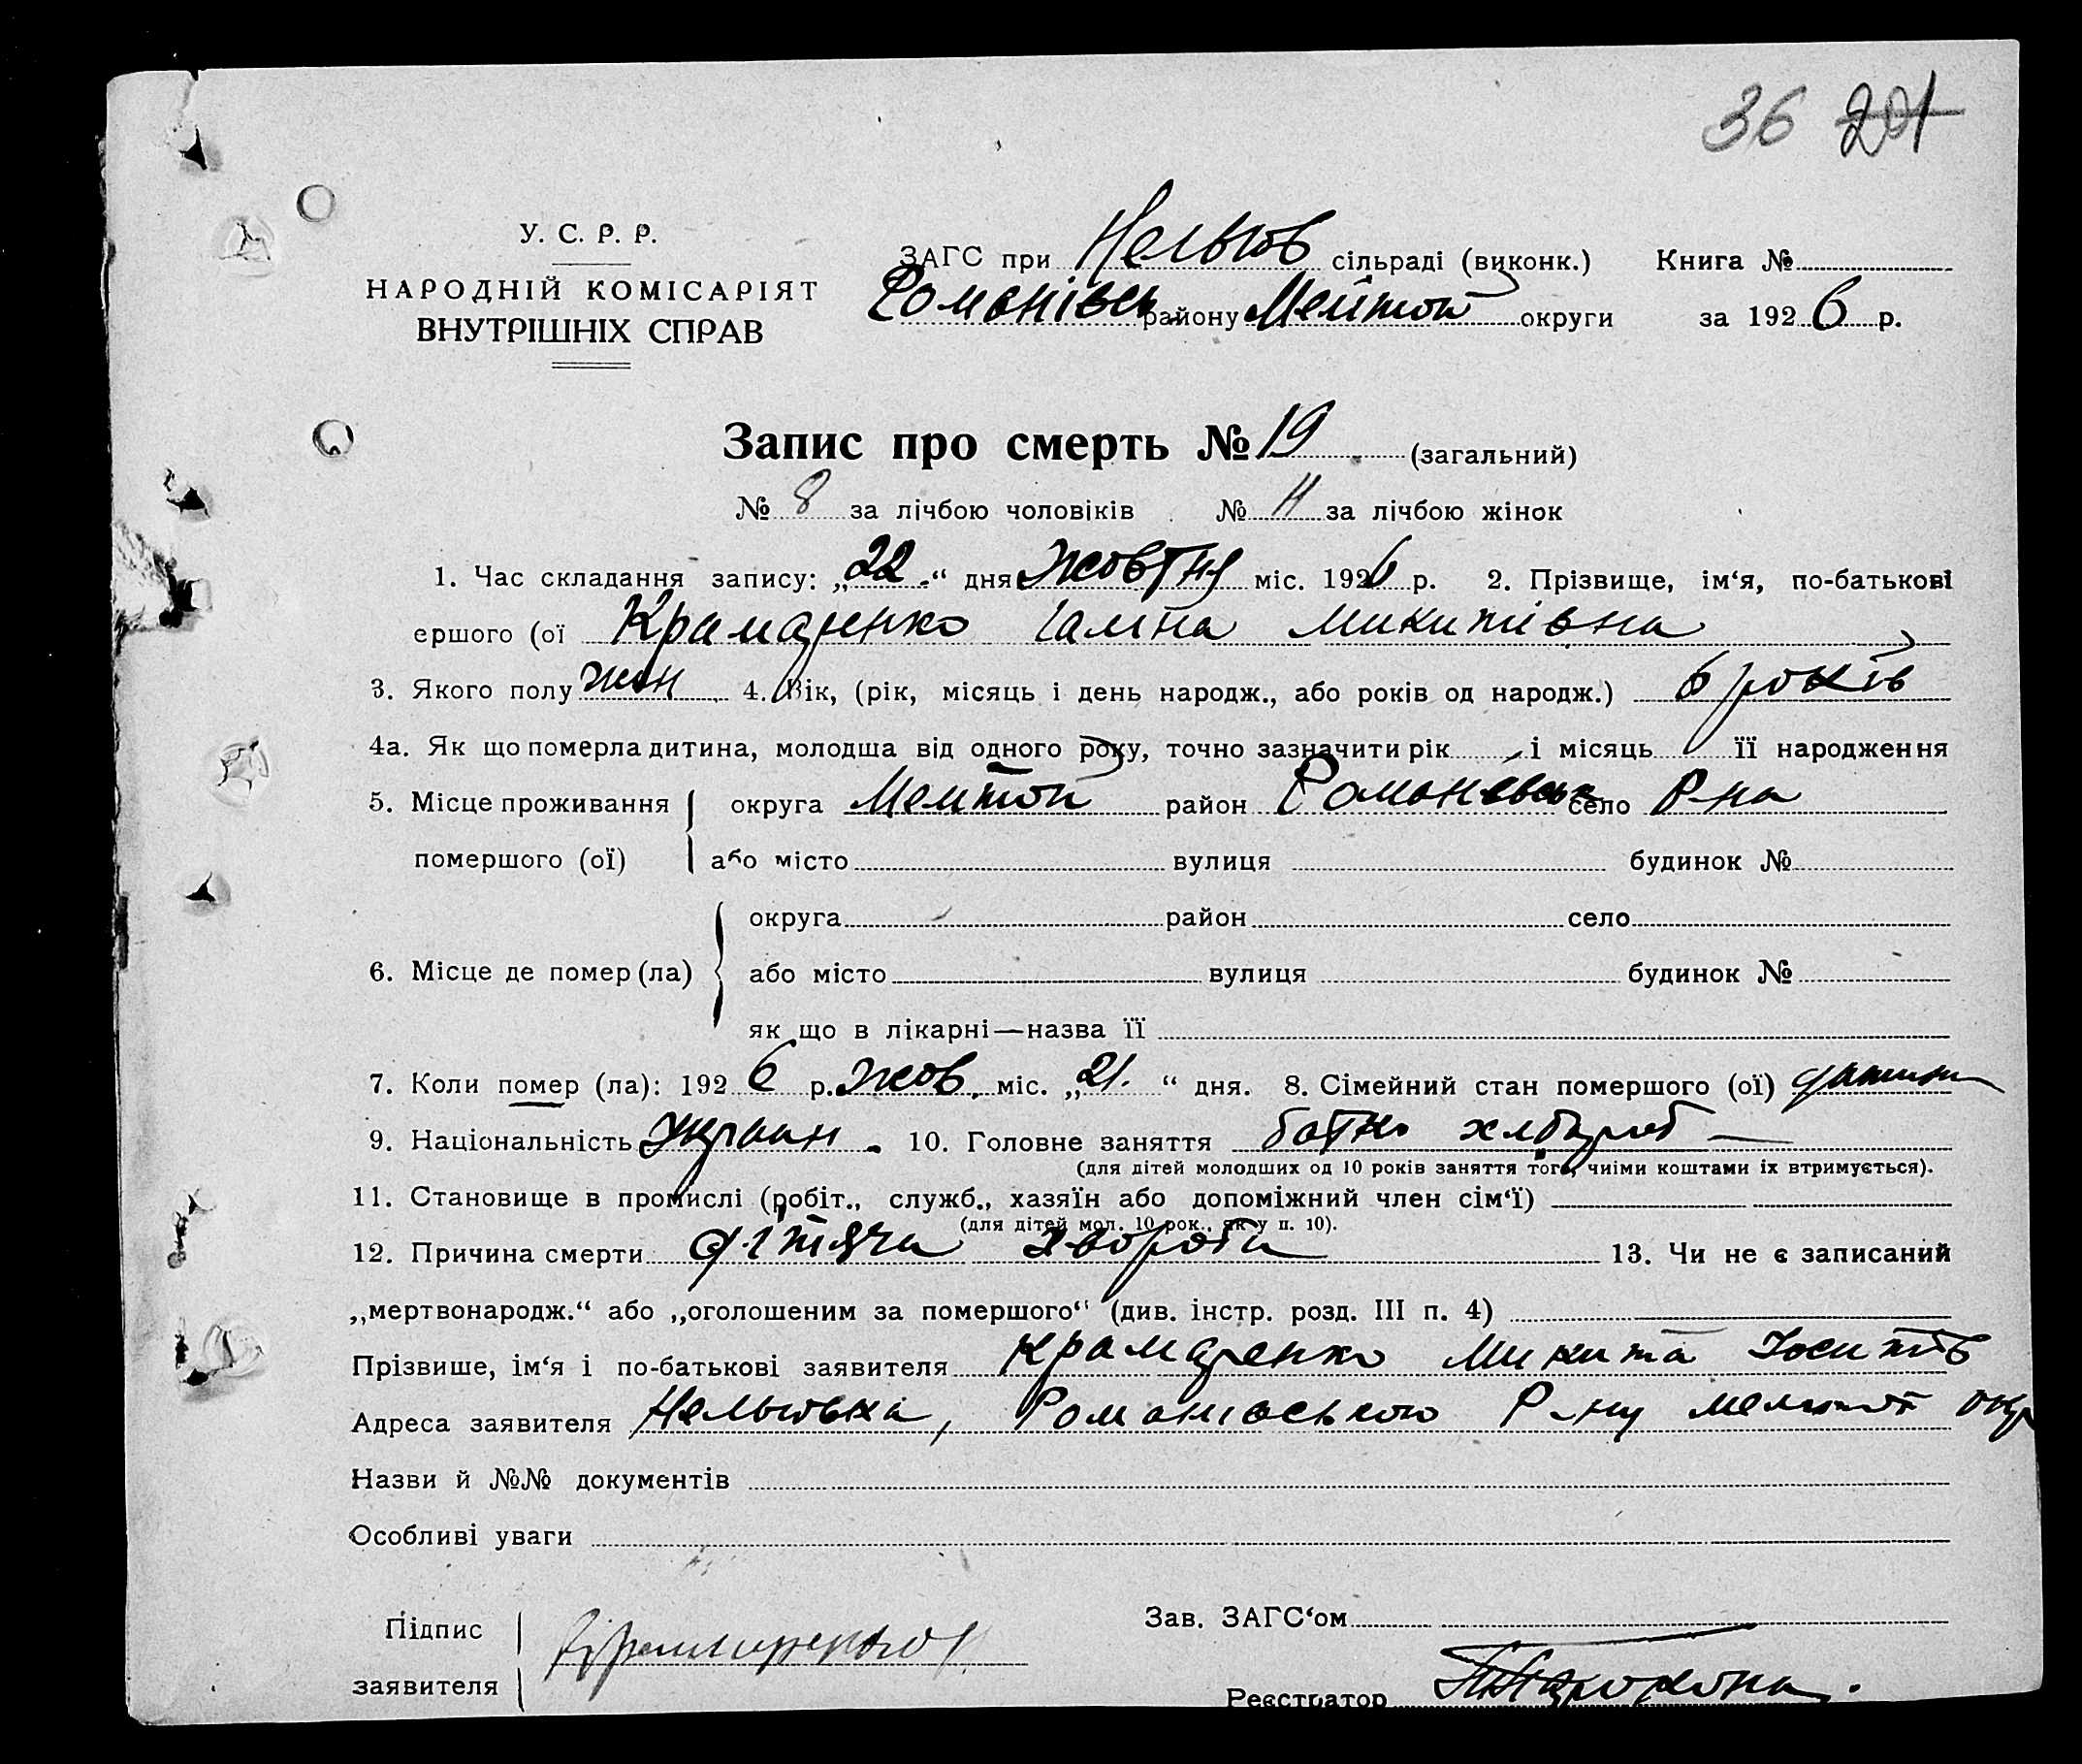 36 201
У. С. Р. Р.
НАРОДНІЙ КОМІСАРІЯТ
ВНУТРІШНІХ СПРАВ
ЗАГС при сільраді (виконк.) Книга №
Романівськ району Мелітоп округи за 1926 р.
Запис про смерть № 19 (загальний)
№ 8 за лічбою чоловіків № 11 за лічбою жінок
1. Час складання запису: „22“ дня Жовтня міс. 1926 р. 2. Прізвище, ім‘я, по-батькові
ершого (ої Крамаренко Галина Микитівна
3. Якого полу жін 4. Вік, (рік, місяць і день народж., або років од народж.) 6 років
4а. Як що померла дитина, молодша від одного року, точно зазначити рік і місяць її народження
5. Місце проживання округа Мелітоп район Романівськ село Р-на
помершого (ої) або місто вулиця будинок №
округа район село
6. Місце де помер (ла) або місто вулиця будинок №
як що в лікарні—назва її
7. Коли помер (ла): 1926 р. Жов. міс. „21.“ дня. 8. Сімейний стан помершого (ої) дитина
9. Національність Украин. 10. Головне заняття батько хлібороб —
(для дітей молодших од 10 років заняття того, чиїми коштами їх втримується).
11. Становище в промислі (робіт., служб., хазяїн або допоміжний член сім‘ї)
(для дітей мол. 10 рок., як у п. 10).
12. Причина смерти дітяча хвороба 13. Чи не є записаний
„мертвонародж.“ або „оголошеним за помершого“ (див. інстр. розд. III п. 4)
Прізвише, ім‘я і по-батькові заявителя Крамаренко Микита Йосипів
Адреса заявителя Романівського Р-ну Мелітоп окр
Назви й №№ документів
Особливі уваги
Підпис Зав. ЗАГС‘ом
заявителя Реєстратор